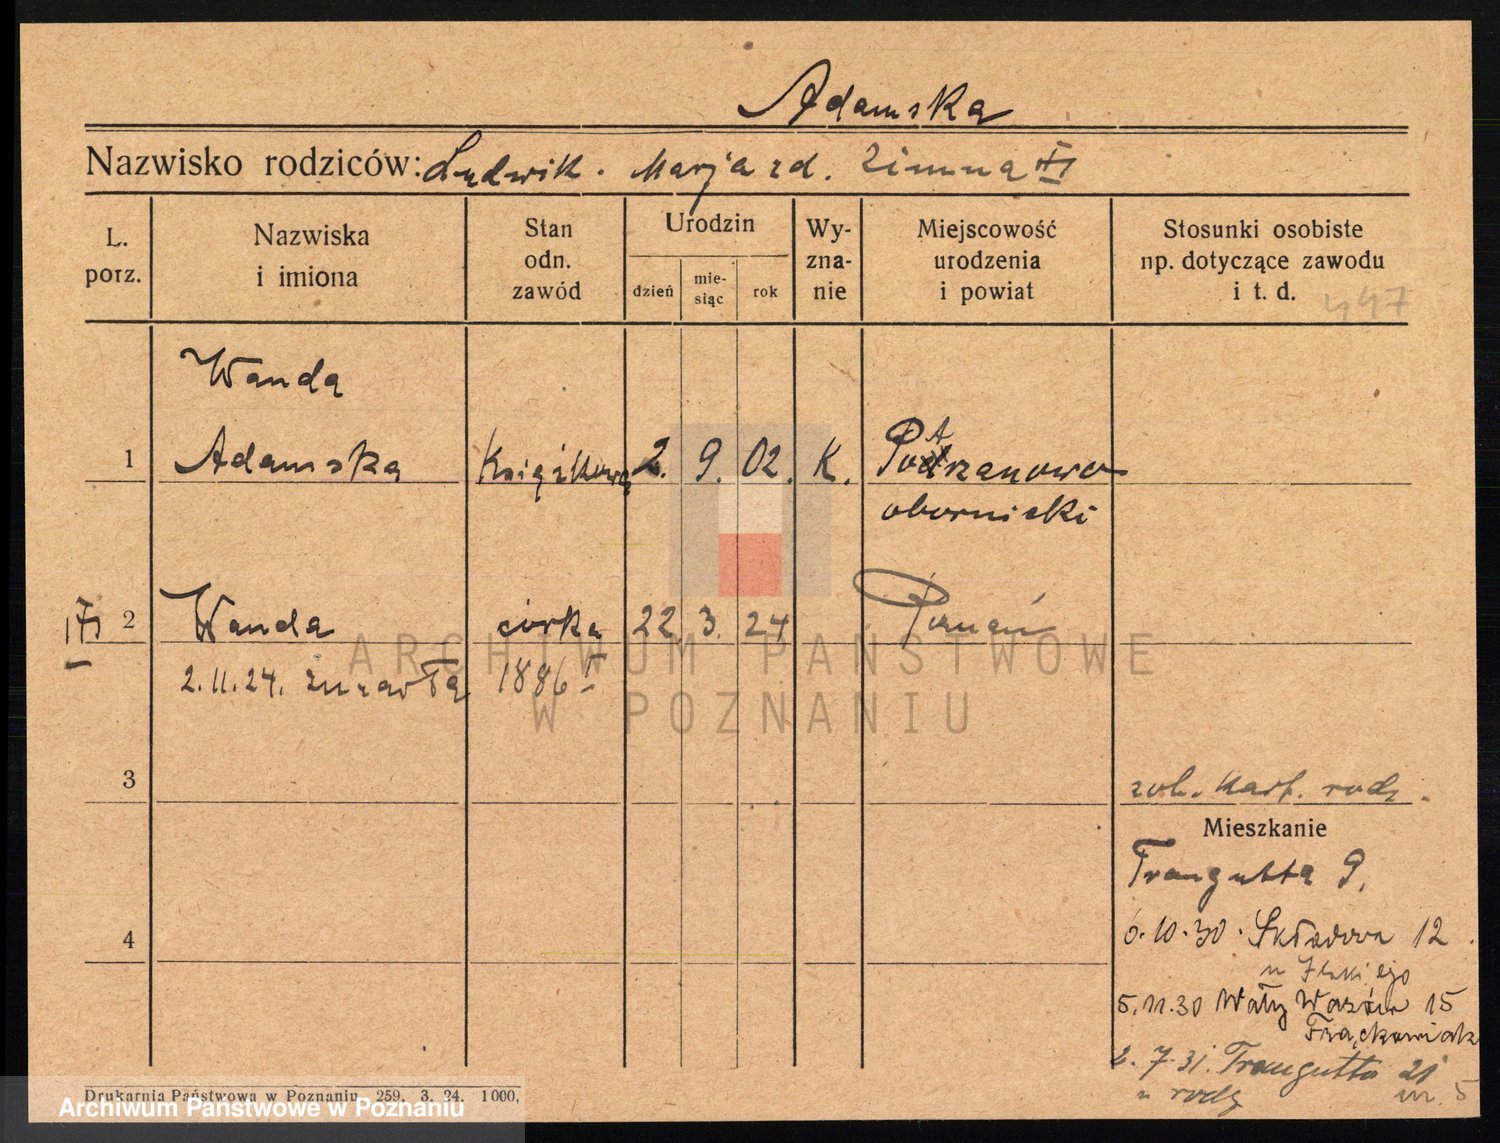 Adamska
Nazwisko rodziców: Ludwik. Marja zd. Zimna
L. porz.
Nazwiska i imiona
Stan odn. zawód
Urodzin
dzień
mie-siąc
rok
Wy-zna-nie
Miejscowość urodzenia i powiat
Stosunki osobiste np. dotyczące zawodu i t. d.
447
Wanda
1 Adamska Książkowa 2. 9. 02. K. Potrzanowo
obornicki
2 Wanda córka 22 3. 24 Poznań
2.11.24. zmarła 1886 I
ARCHIWUM PAŃSTWOWE
W POZNANIU
3
zob. kart. rodz.
Mieszkanie
Traugutta 9.
4
6.10.30. Składowa 12.
5.11.30 Wały Wazów 15
Frąckowiak
2.7.31. Traugutta 21
u rodz m. 5
Drukarnia Państwowa w Poznaniu 259. 3. 24. 1000.
Archiwum Państwowe w Poznaniu